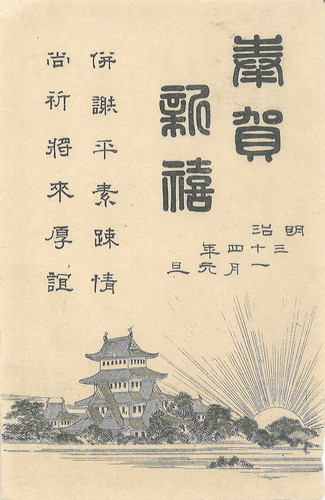 奉賀
新禧
明治
三十四年
一月元旦
併謝平素疎情
尚祈將來厚誼